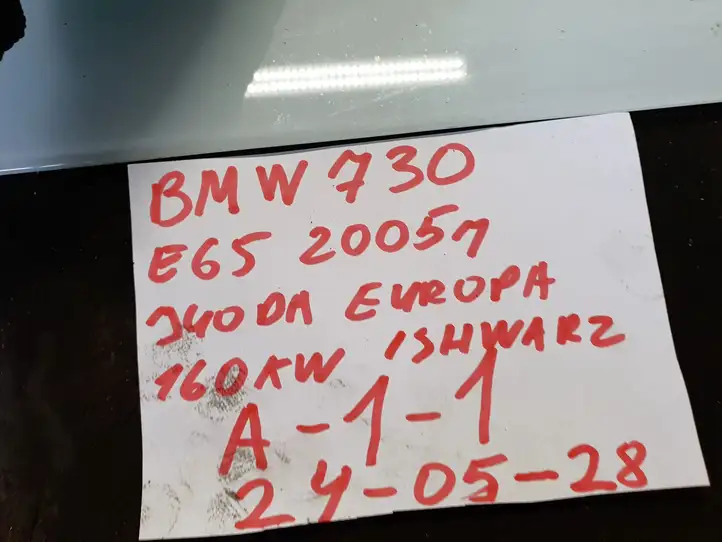 BMW 730
E65 2005m
JUODA EUROPA
160KW /SHWARZ
A-1-1
24-05-28